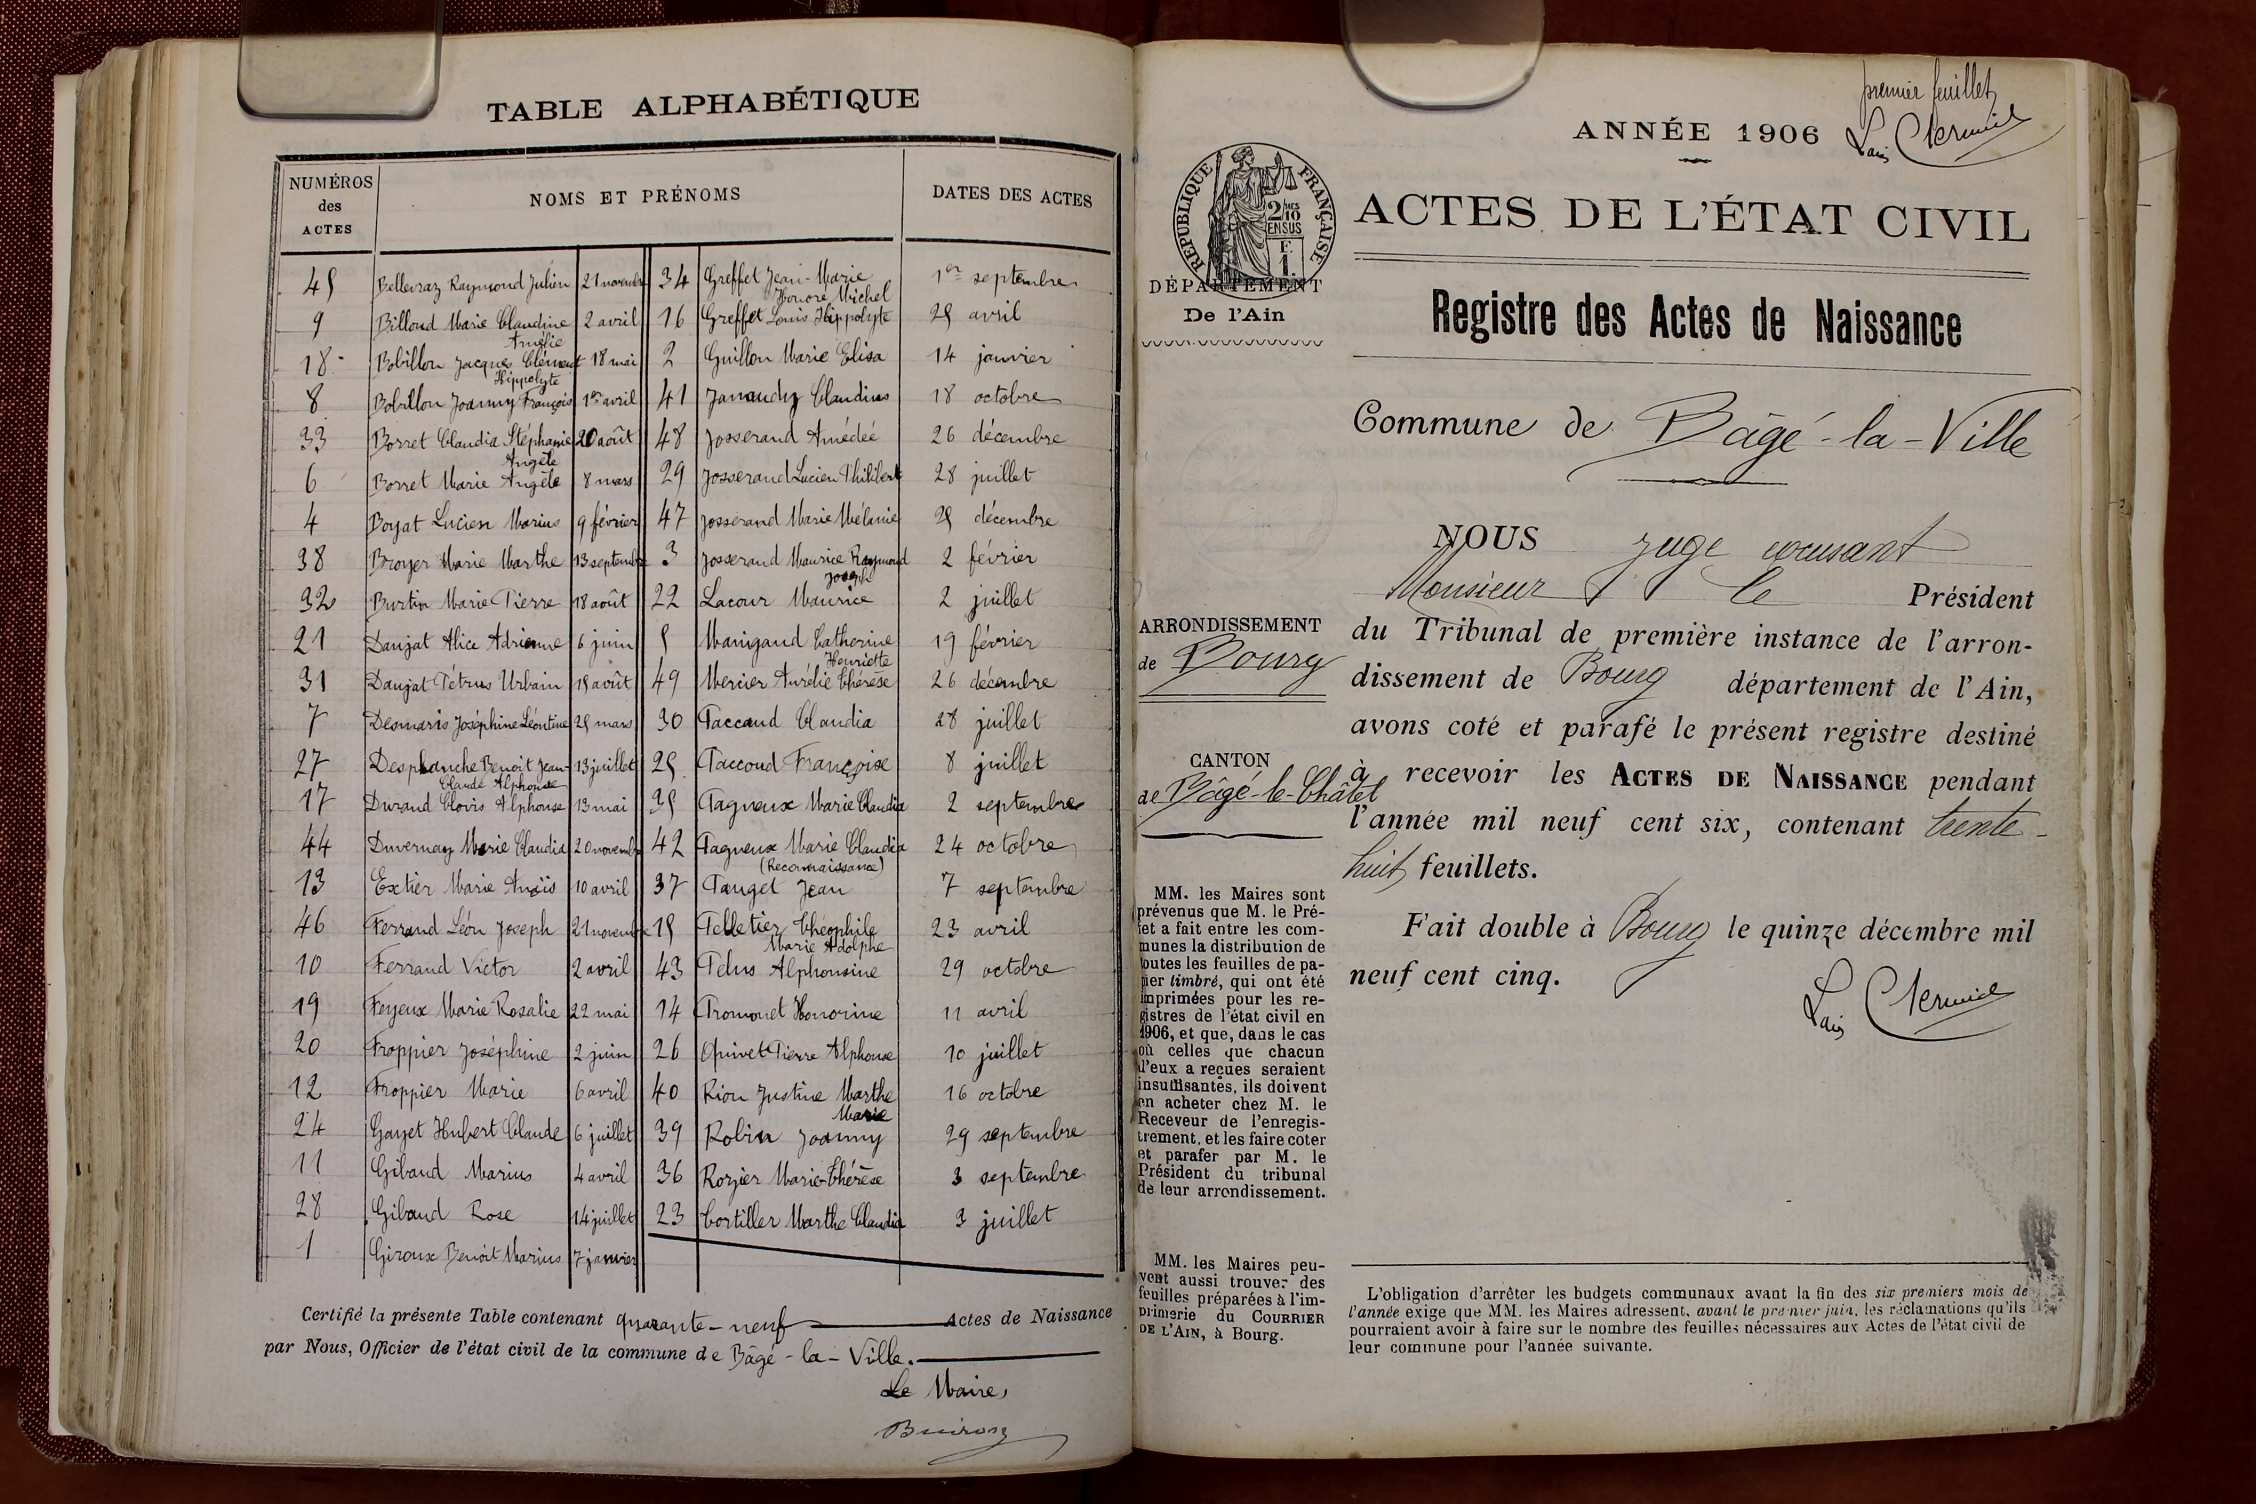 TABLE ALPHABÉTIQUE
NUMÉROS
des
ACTES
NOMS ET PRÉNOMS
DATES DES ACTES
45 Bellevraz Raymond Julien 21 novembre 34 Greffet Jean-Marie 1er septembre
Honoré Michel
9 Billoud Marie Claudine 2 avril 16 Greffet Louis Hippolyte 25 avril
Amélie
18 Bobillon Jacques Clément 18 mai 2 Guillon Marie Elisa 14 janvier
Hippolyte
8 Bobillon Joanny François 1er avril 41 Janaudy Claudius 18 octobre
33 Borret Claudia Stéphanie 20 août 48 Josserand Amédée 26 décembre
Angèle
6 Borret Marie Angèle 8 mars 29 Josserand Lucien Philibert 28 juillet
4 Boyat Lucien Marius 9 février 47 Josserand Marie Mélanie 25 décembre
38 Broyer Marie Marthe 13 septembre 3 Josserand Maurice Raymond 2 février
Joseph
32 Burtin Marie Pierre 18 août 22 Lacour Maurice 2 juillet
21 Daujat Alice Adrienne 6 juin 5 Manigand Catherine 19 février
Henriette
31 Daujat Pétrus Urbain 15 août 49 Mercier Aurélie Thérèse 26 décembre
7 Desmaris Joséphine Léontine 25 mars 30 Paccaud Claudia 28 juillet
27 Desplanche Benoit Jean- 13 juillet 25 Paccoud Françoise 8 juillet
Claude Alphonse
17 Durand Clovis Alphonse 13 mai 35 Pagneux Marie Claudia 2 septembre
44 Duvernay Marie Claudia 20 novembre 42 Pagneux Marie Claudia 24 octobre
(Reconnaissance)
13 Extier Marie Anaïs 10 avril 37 Pauget Jean 7 septembre
46 Ferrand Léon Joseph 21 novembre 15 Pelletier Théophile 23 avril
Marie Adolphe
10 Ferrand Victor 2 avril 43 Pelus Alphonsine 29 octobre
19 Feyeux Marie Rosalie 22 mai 14 Promonet Honorine 11 avril
20 Froppier Joséphine 2 juin 26 Quivet Pierre Alphonse 10 juillet
12 Froppier Marie 6 avril 40 Rion Justine Marthe 16 octobre
Marie
24 Gayet Hubert Claude 6 juillet 39 Robin Joanny 29 septembre
11 Giband Marius 4 avril 36 Rozier Marie-Thérèse 3 septembre
28 Giband Rose 14 juillet 23 Tortiller Marthe Claudia 3 juillet
1 Giroux Benoit Marius 7 janvier
Certifié la présente Table contenant quarante-neuf Actes de Naissance
par Nous, Officier de l'état civil de la commune de Bâgé-la-Ville.
Le Maire,
premier feuillet
ANNÉE 1906
RÉPUBLIQUE FRANÇAISE
2/10 EN SUS
F. 1
ACTES DE L'ÉTAT CIVIL
DÉPARTEMENT
De l'Ain
Registre des Actes de Naissance
Commune de Bâgé-la-Ville
NOUS juge
Monsieur le Président
du Tribunal de première instance de l'arron-
dissement de Bourg département de l'Ain,
avons coté et parafé le présent registre destiné
à recevoir les ACTES DE NAISSANCE pendant
l'année mil neuf cent six, contenant trente-
huit feuillets.
Fait double à Bourg le quinze décembre mil
neuf cent cinq.
ARRONDISSEMENT
de Bourg
CANTON
de Bâgé-le-Châtel
MM. les Maires sont
prévenus que M. le Pré-
fet a fait entre les com-
munes la distribution de
toutes les feuilles de pa-
pier timbré, qui ont été
imprimées pour les re-
gistres de l'état civil en
1906, et que, dans le cas
où celles que chacun
d'eux a reçues seraient
insuffisantes, ils doivent
en acheter chez M. le
Receveur de l'enregis-
trement, et les faire coter
et parafer par M. le
Président du tribunal
de leur arrondissement.
MM. les Maires peu-
vent aussi trouver des
feuilles préparées à l'im-
primerie du COURRIER
DE L'AIN, à Bourg.
L'obligation d'arrêter les budgets communaux avant la fin des six premiers mois de
l'année exige que MM. les Maires adressent, avant le premier juin, les réclamations qu'ils
pourraient avoir à faire sur le nombre des feuilles nécessaires aux Actes de l'état civil de
leur commune pour l'année suivante.